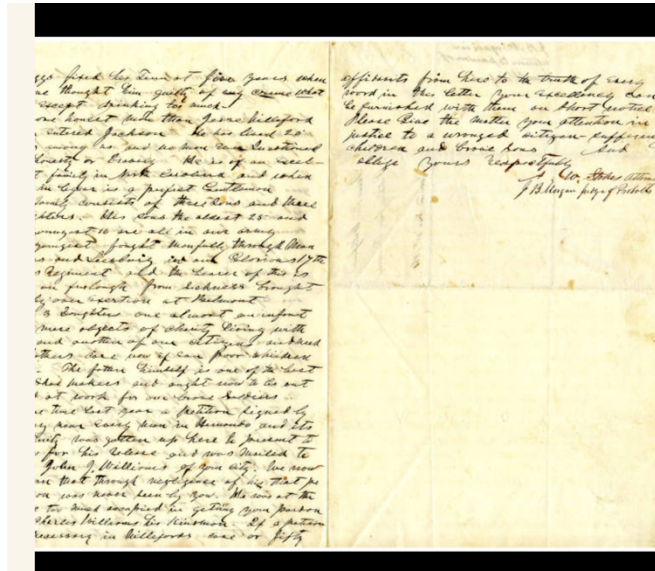 fixed his Time at five years when
thought him guilty of any crime what
except drinking too much.
one honest man than Jesse Williford
entered Jackson. He has lived 20
among us and no man ever questioned
Honesty or Bravery. He is of an excel-
t family in North Carolina and when
in liquor is a perfect Gentleman
family consists of three sons and three
ghters. His sons the oldest 25 and
youngest 16 are all in our army
youngest fought manfully through Man
and Leesburg in our Glorious 17th
Regiment and the bearer of this is
on furlough from sickness brought
by over exertion at Richmond
3 Daughters one almost an infant
mere objects of charity living with
and another of our citizens and need
fathers care now if ever poor children
The father himself is one of the best
shoe makers and ought now to be out
at work for our brave Soldiers.
time last year a petition signed by
near every man in Hernando and its
was gotten up here to present to
for his release and was mailed to
John J. Williams of your city. We now
that through negligence of his that
was never seen by you. He was at the
too much occupied in getting your pardon
Charles Williams his kinsman. If a petition
necessary in Willifords case or fifty
affidavits from here to the truth of every
word in this letter your Excellency can
be furnished with them on short notice
Please Give the matter your attention in
justice to a wronged citizen - suffering
children and brave sons And
oblige Yours respectfully
W. Stokes
J B Morgan judge of Probate